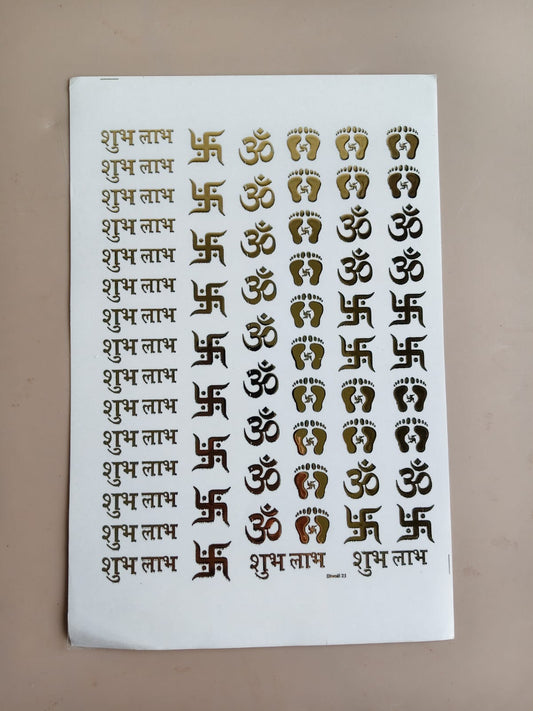 शुभ लाभ
शुभ लाभ
शुभ लाभ
शुभ लाभ
शुभ लाभ
शुभ लाभ
शुभ लाभ
शुभ लाभ
शुभ लाभ
शुभ लाभ
शुभ लाभ
शुभ लाभ
शुभ लाभ
शुभ लाभ
शुभ लाभ
ॐ
ॐ
ॐ
ॐ
ॐ
ॐ
ॐ
ॐ
ॐ
ॐ ॐ
ॐ ॐ
ॐ ॐ
शुभ लाभ शुभ लाभ
Diwali